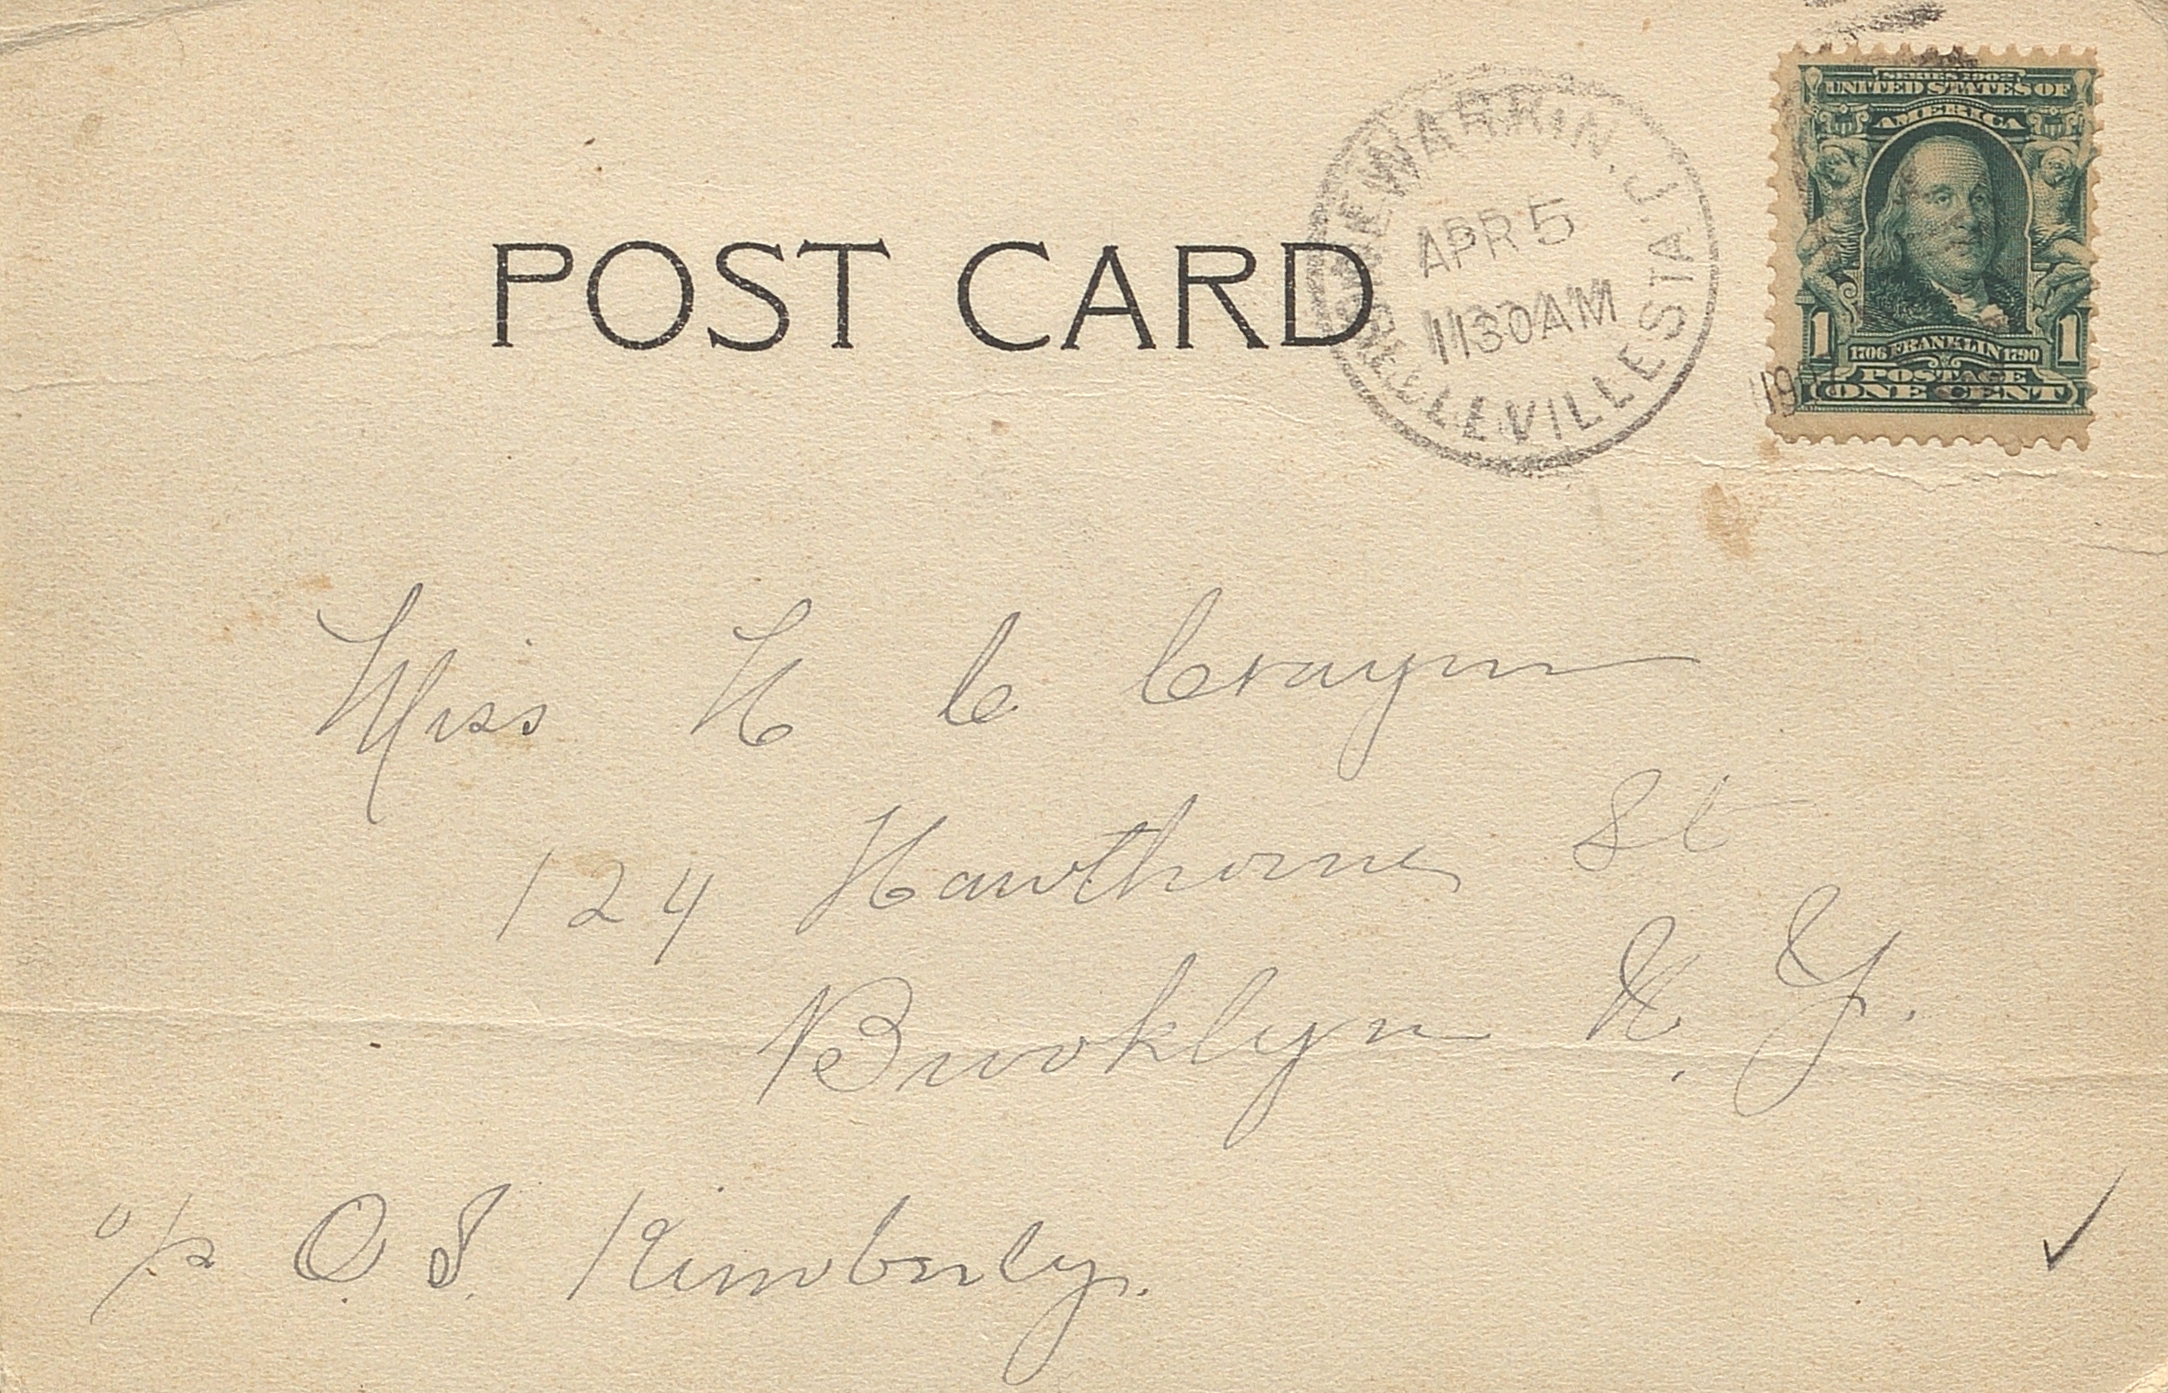 SERIES 1902
UNITED STATES OF
AMERICA
1 1
1706 FRANKLIN 1790
POSTAGE
ONE CENT
NEWARK, N.J.
APR 5
1130AM
BELLEVILLE STA.
19
POST CARD
Miss H C Craym
124 Hawthorne St
Brooklyn N. Y.
O. S. Kimberly.